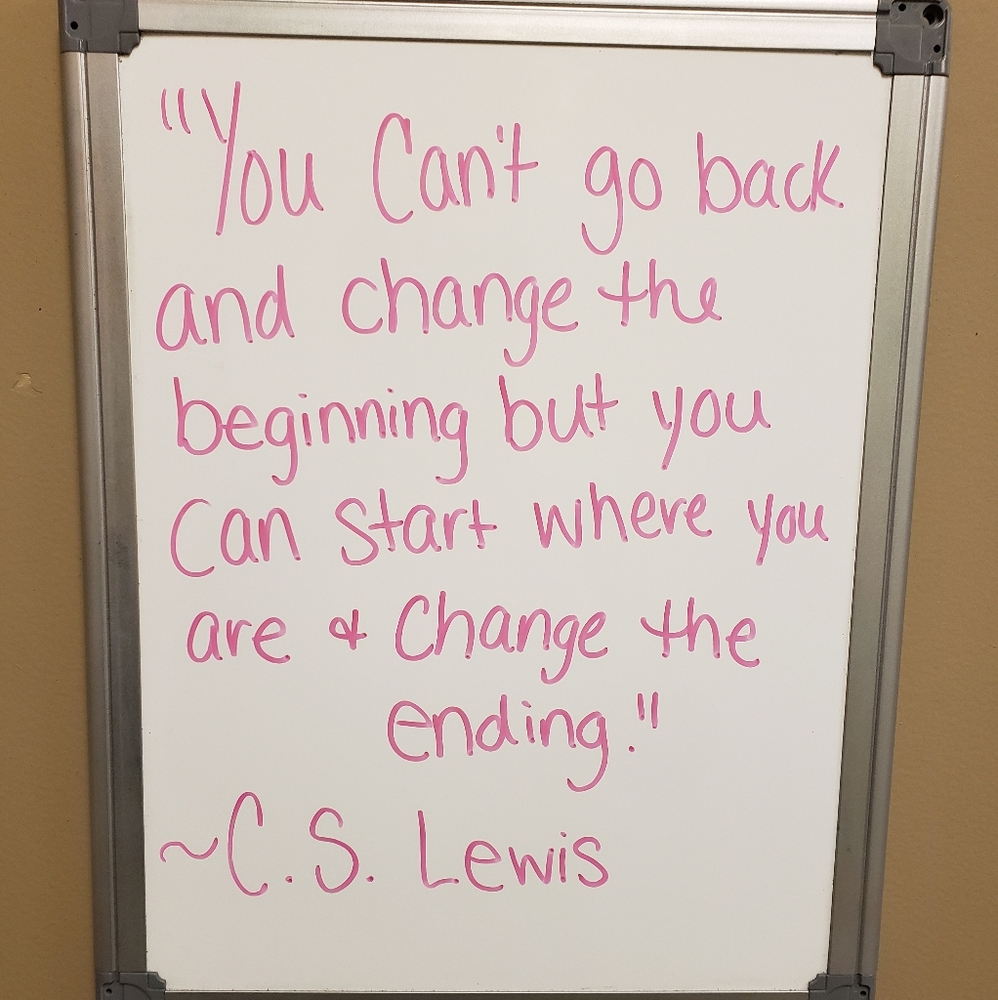 "You Can't go back
and change the
beginning but you
Can start where you
are & Change the
ending."
~C.S. Lewis